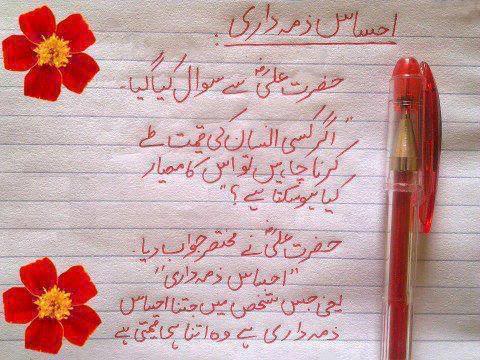 احساس ذمہ داری :
حضرت علیؓ سے سوال کیا گیا۔
"اگر کسی انسان کی قیمت طے
کرنا چاہیں تو اس کا معیار
کیا ہو سکتا ہے؟"
حضرت علیؓ نے مختصر جواب دیا۔
"احساس ذمہ داری"
یعنی جس شخص میں جتنا احساس
ذمہ داری ہے وہ اتنا ہی قیمتی ہے